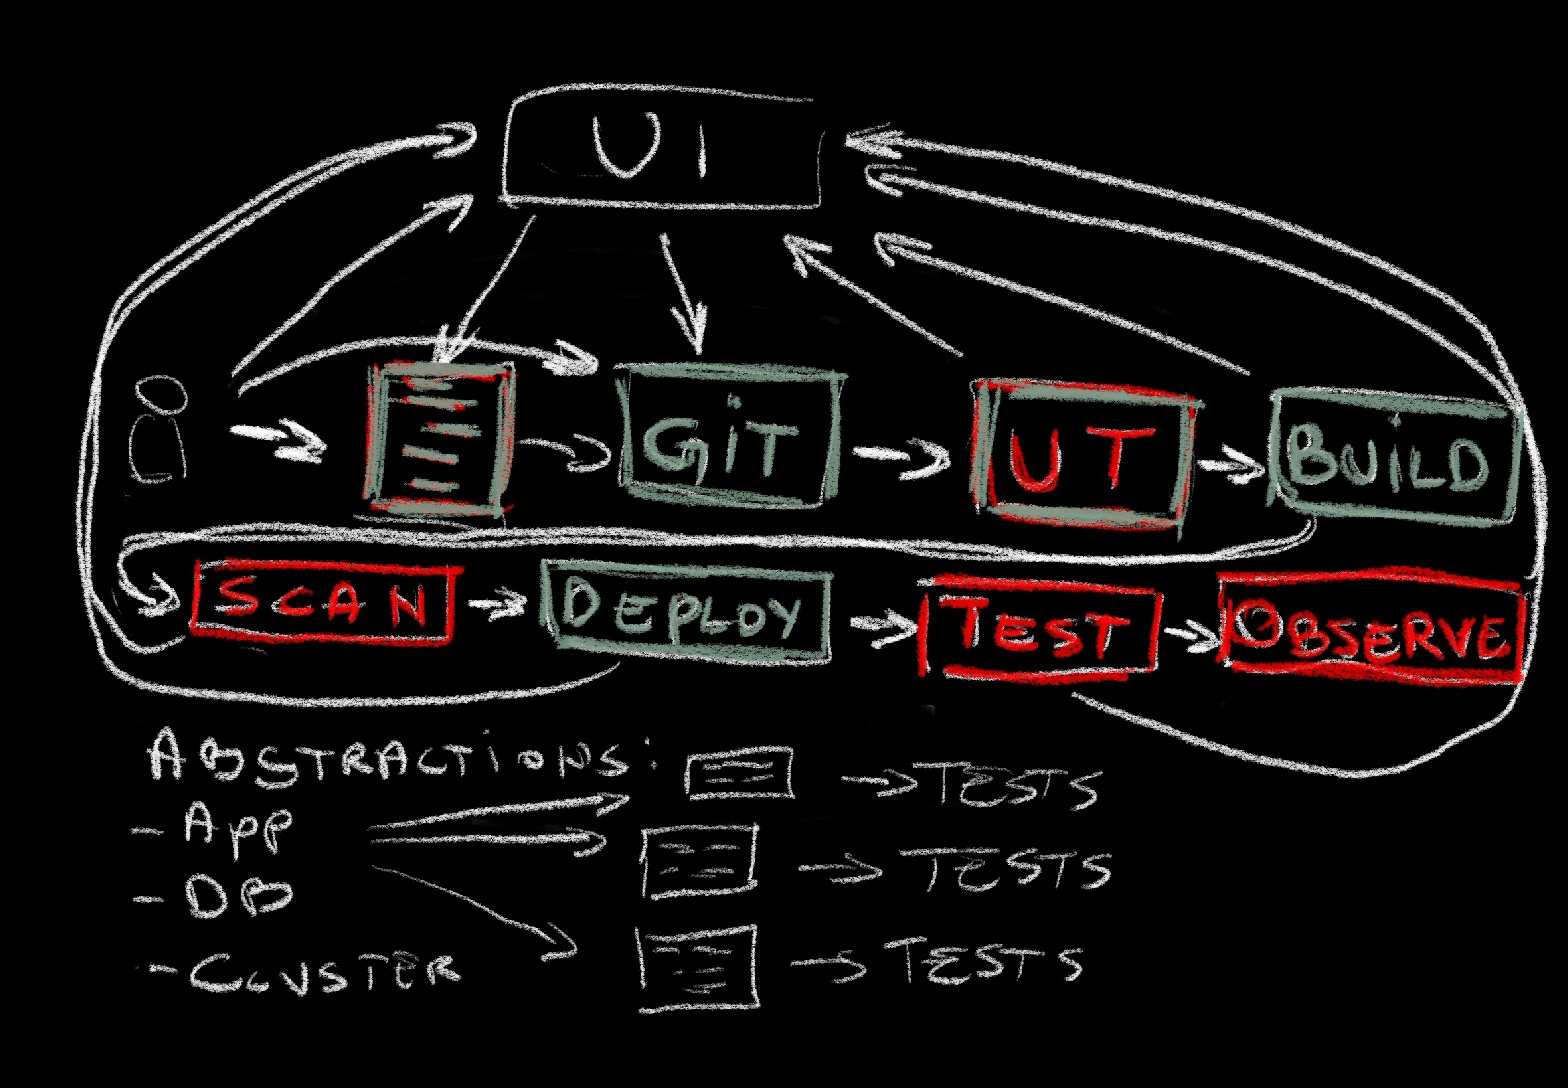 UI
GiT
UT
BUiLD
SCAN
DEPLOY
TEST
OBSERVE
ABSTRACTiONS:
- App
- DB
- CLUSTER
TESTS
TESTS
TESTS